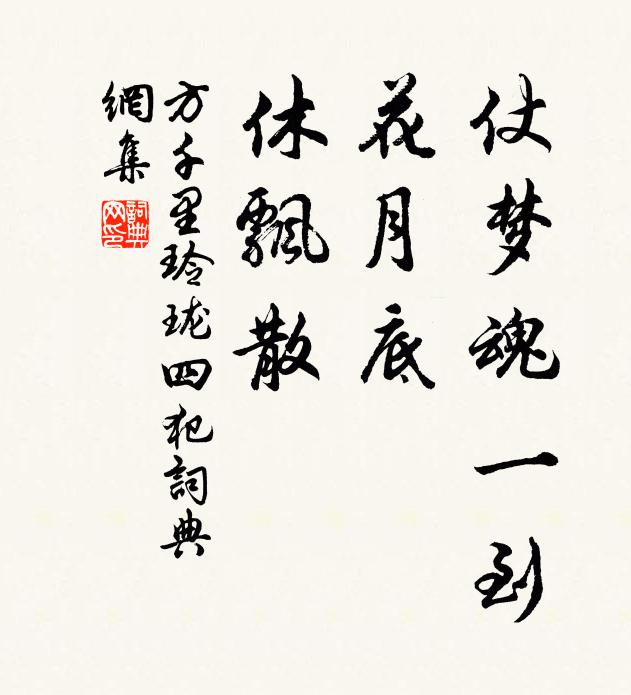 仗梦魂一到
花月底
休飄散
方千里玲珑四犯詞典
網集
詞典网印